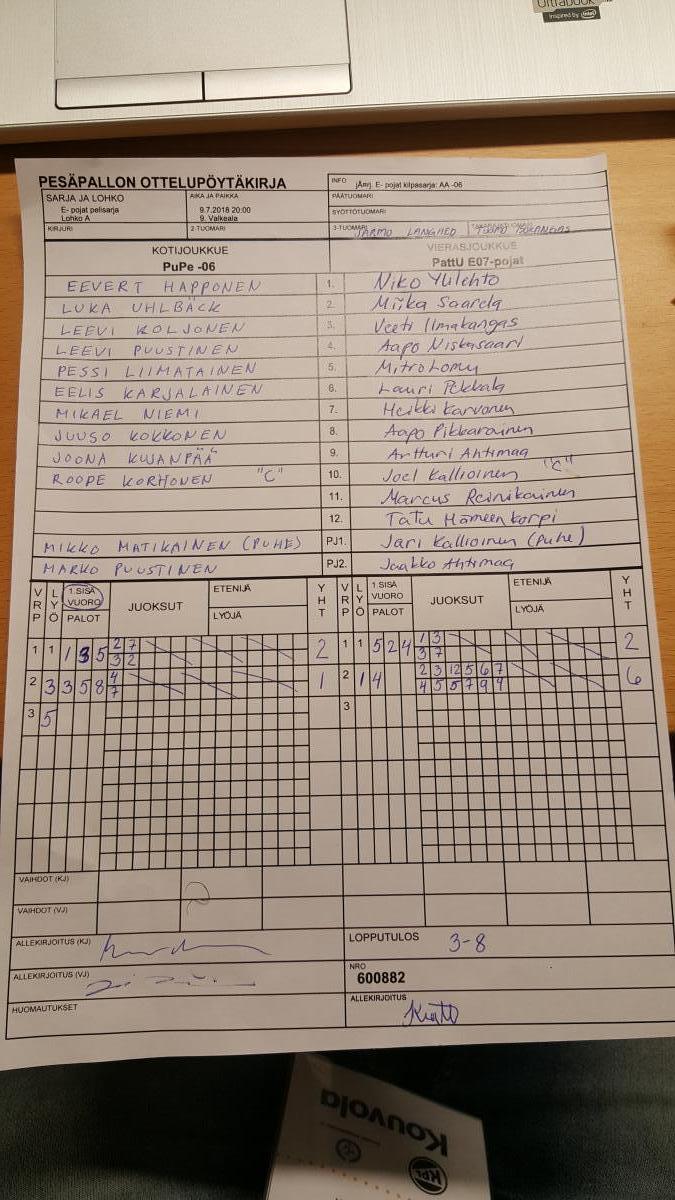 Ultrabook™
Inspired by intel
PESÄPALLON OTTELUPÖYTÄKIRJA
INFO jÄmj. E- pojat kilpasarja: AA -06
SARJA JA LOHKO
E- pojat pelisarja
Lohko A
AIKA JA PAIKKA
9.7.2018 20:00
9. Valkeala
PÄÄTUOMARI
SYÖTTÖTUOMARI
KIRJURI
2-TUOMARI
3-TUOMARI JARMO LANGHED
KOTIJOUKKUE
PuPe -06
VIERASJOUKKUE
PattU E07-pojat
EEVERT HAPPONEN 1. Niko Ylilehto
LUKA UHLBÄCK 2. Miika Saarela
LEEVI KOLJONEN 3. Veeti Ilmakangas
LEEVI PUUSTINEN 4. Aapo Niskasaari
PESSI LIIMATAINEN 5. Mitro Lomu
EELIS KARJALAINEN 6. Lauri Pekkala
MIKAEL NIEMI 7. Heikki Karvonen
JUUSO KOKKONEN 8. Aapo Pikkarainen
JOONA KUJANPÄÄ 9. Artturi Ahtimaa
ROOPE KORHONEN "C" 10. Joel Kallioinen "C"
11. Marcus Reinikainen
12. Tatu Hämeenkorpi
MIKKO MATIKAINEN (PUHE) PJ1. Jari Kallioinen (puhe)
MARKO PUUSTINEN PJ2. Jaakko Ahtimaa
VRP LYÖ 1.SISÄ VUORO PALOT JUOKSUT ETENIJÄ LYÖJÄ YHT VRP LYÖ 1.SISÄ VUORO PALOT JUOKSUT ETENIJÄ LYÖJÄ YHT
1 1 1 3 5 2 7 2 1 1 5 2 4 1 3 2
3 2 3 7
2 3 3 5 8 4 1 2 1 4 2 3 12 5 6 7 6
7 4 5 5 7 9 9
3 5 3
VAIHDOT (KJ)
VAIHDOT (VJ)
ALLEKIRJOITUS (KJ)
LOPPUTULOS 3-8
ALLEKIRJOITUS (VJ)
NRO
600882
HUOMAUTUKSET
ALLEKIRJOITUS
Kouvola
KPL